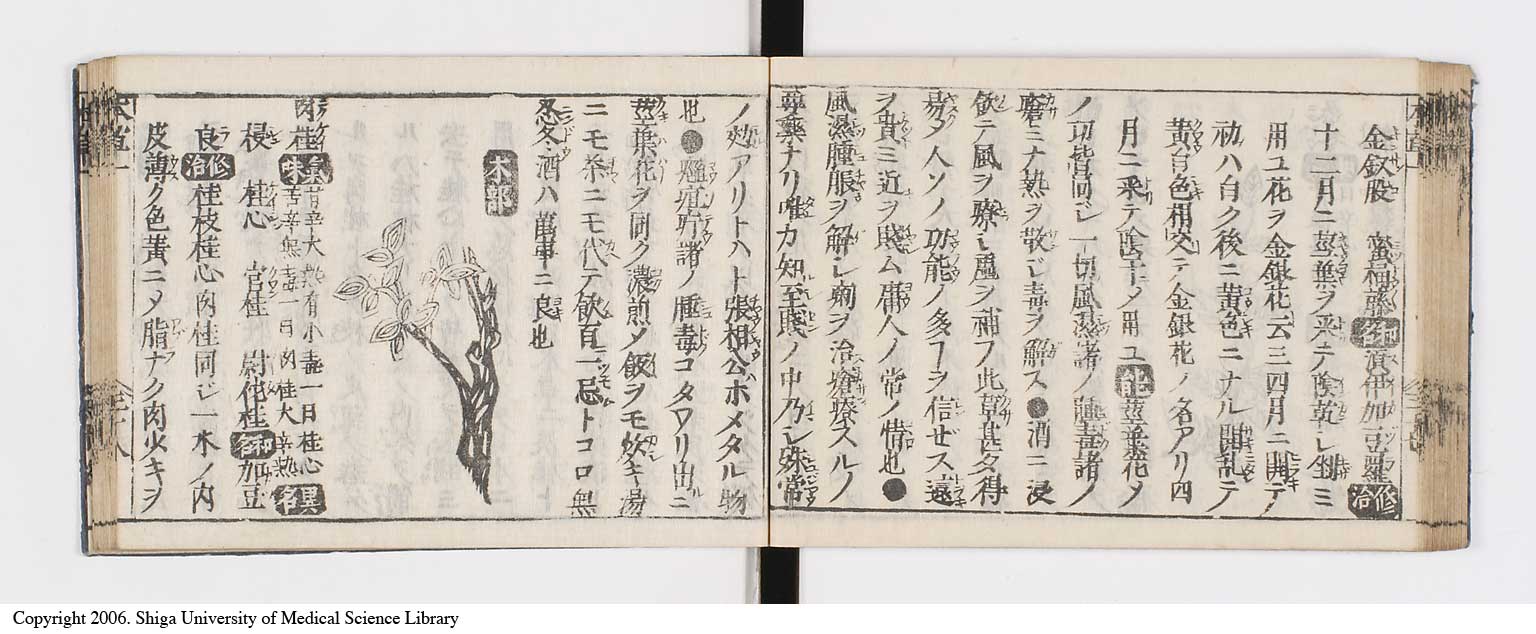 金釵股 蜜桶藤 和名 須伊加豆羅 修治
十二月ニ莖葉ヲ采テ陰乾シ剉ミ
用ユ花ヲ金銀花云三四月ニ開テ
初ハ白ク後ニ黄色ニナル開乱テ
黄白色相交テ金銀花ノ名アリ四
月ニ采テ陰干メ用ユ 能 莖葉花メ
ノ功皆同シ一切風濕諸ノ腫毒諸ノ
瘡ミナ熱ヲ散シ毒ヲ解ス●酒ニ浸
飲テ風ヲ療シ虚ヲ補フ此草甚タ得
易タ人ソノ功能ノ多フヲ信ぜス遠
ヲ貴ミ近ヲ賤ム庸人ノ常ノ情也●
風濕腫脹ヲ解シ痢ヲ治瘡療スルノ
尋藥ナリ唯カ知至賤ノ中乃シ殊常
ノ效アリトハト張相公ホメタル物
也●癰疽疔諸ノ腫毒コタワリ出ニ
莖葉花ヲ同ク濃煎メ飯ヲモ炊キ湯
ニモ茶ニモ代テ飲百一忌トコロ無
忍冬酒ハ萬事ニ良也
木部
肉桂 氣味 甘辛大熱有小毒一曰桂心
苦辛無毒一曰肉桂大辛熱 異名
梫 桂心 官桂 尉佗桂 和名 加豆
良 修治 桂枝桂心肉桂同シ一木ノ内
皮薄ク色黄ニメ脂ナク肉火キヲ
Copyright 2006. Shiga University of Medical Science Library